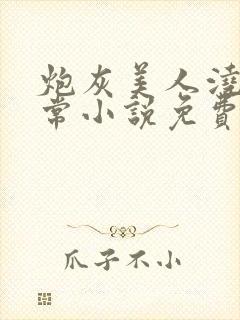 炮灰美人澆
常小說免費
爪子不小